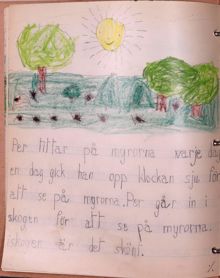 Per tittar på myrorna varje dag
en dag gick han opp klockan sju för
att se på myrorna. Per går in i
skogen för att se på myrorna.
i skogen är det skönt.